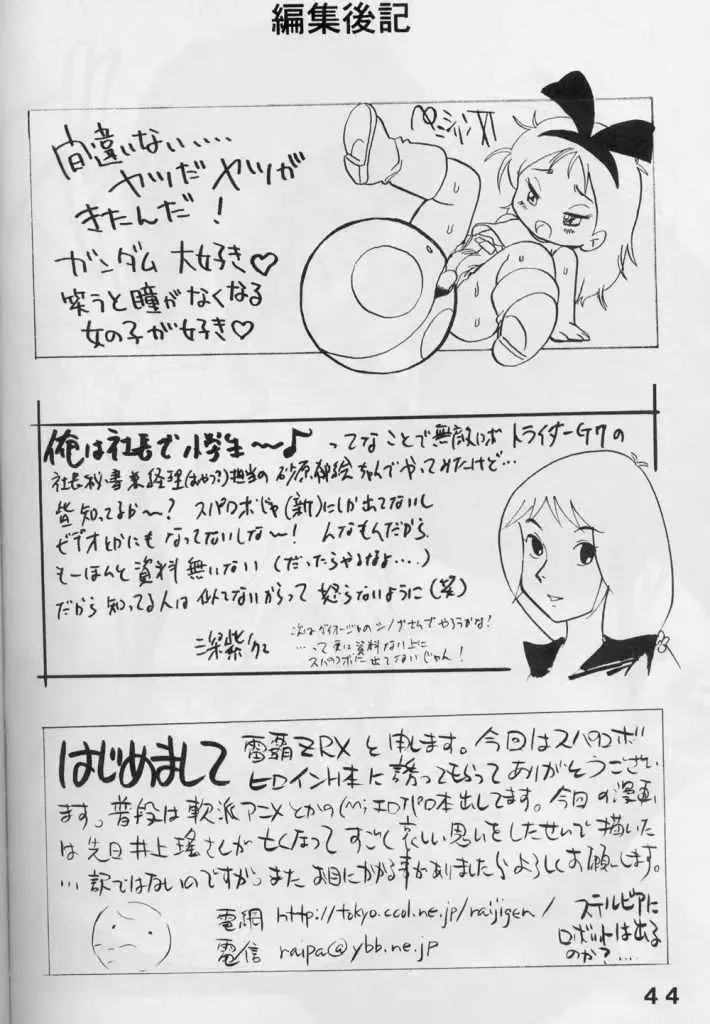 編集後記
間違いない....
ヤツだヤツが
きたんだ！
ガンダム 大好き♡
笑うと瞳がなくなる
女の子が好き♡
俺は社長で小学生〜〜♪ ってなことで無敵ロボ トライダーG7の
社長秘書兼経理(おやつ?)担当の 砂原郁絵ちゃんでやってみたけど…
皆知ってるか〜？ スパロボじゃ(新)にしか出てないし
ビデオとかにも なってないしな〜！ んなもんだから
もーほんと資料無いない (だったらやるなよ....)
だから 知ってる人は 似てないからって 怒らないように (笑)
深紫
って更に資料ない上に
スパロボに出てないじゃん！
はじめまして 電覇ZRX と申します。今回はスパロボ
ヒロインH本に 誘ってもらって ありがとうござい
ます。普段は軟派アニメとかの エロパロ本出してます。今回の漫画
は先日 井上瑤さんが 亡くなって すごく哀しい思いをしたせいで描いた
…訳ではないのですが。また お目にかかる事がありましたら よろしくお願いします。
電網 http://tokyo.ccol.ne.jp/raijigen/
電信 raipa@ybb.ne.jp
ステルビアに
ロボットは出る
のか？....
44